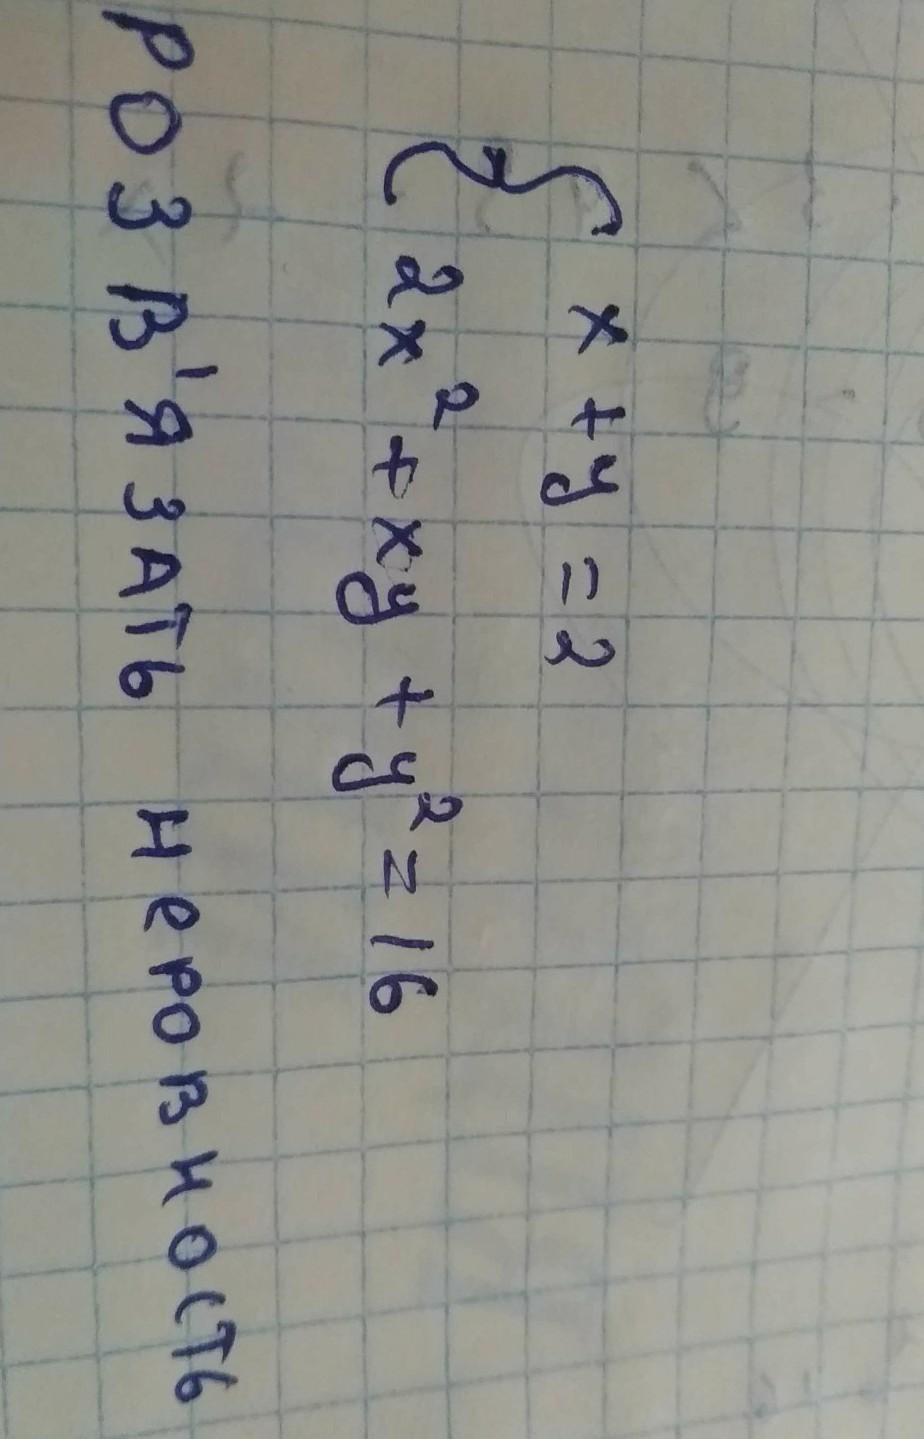 x + y = 2
2x² + xy + y² = 16
РОЗВ'ЯЗАТЬ НеРОВНОСТЬ